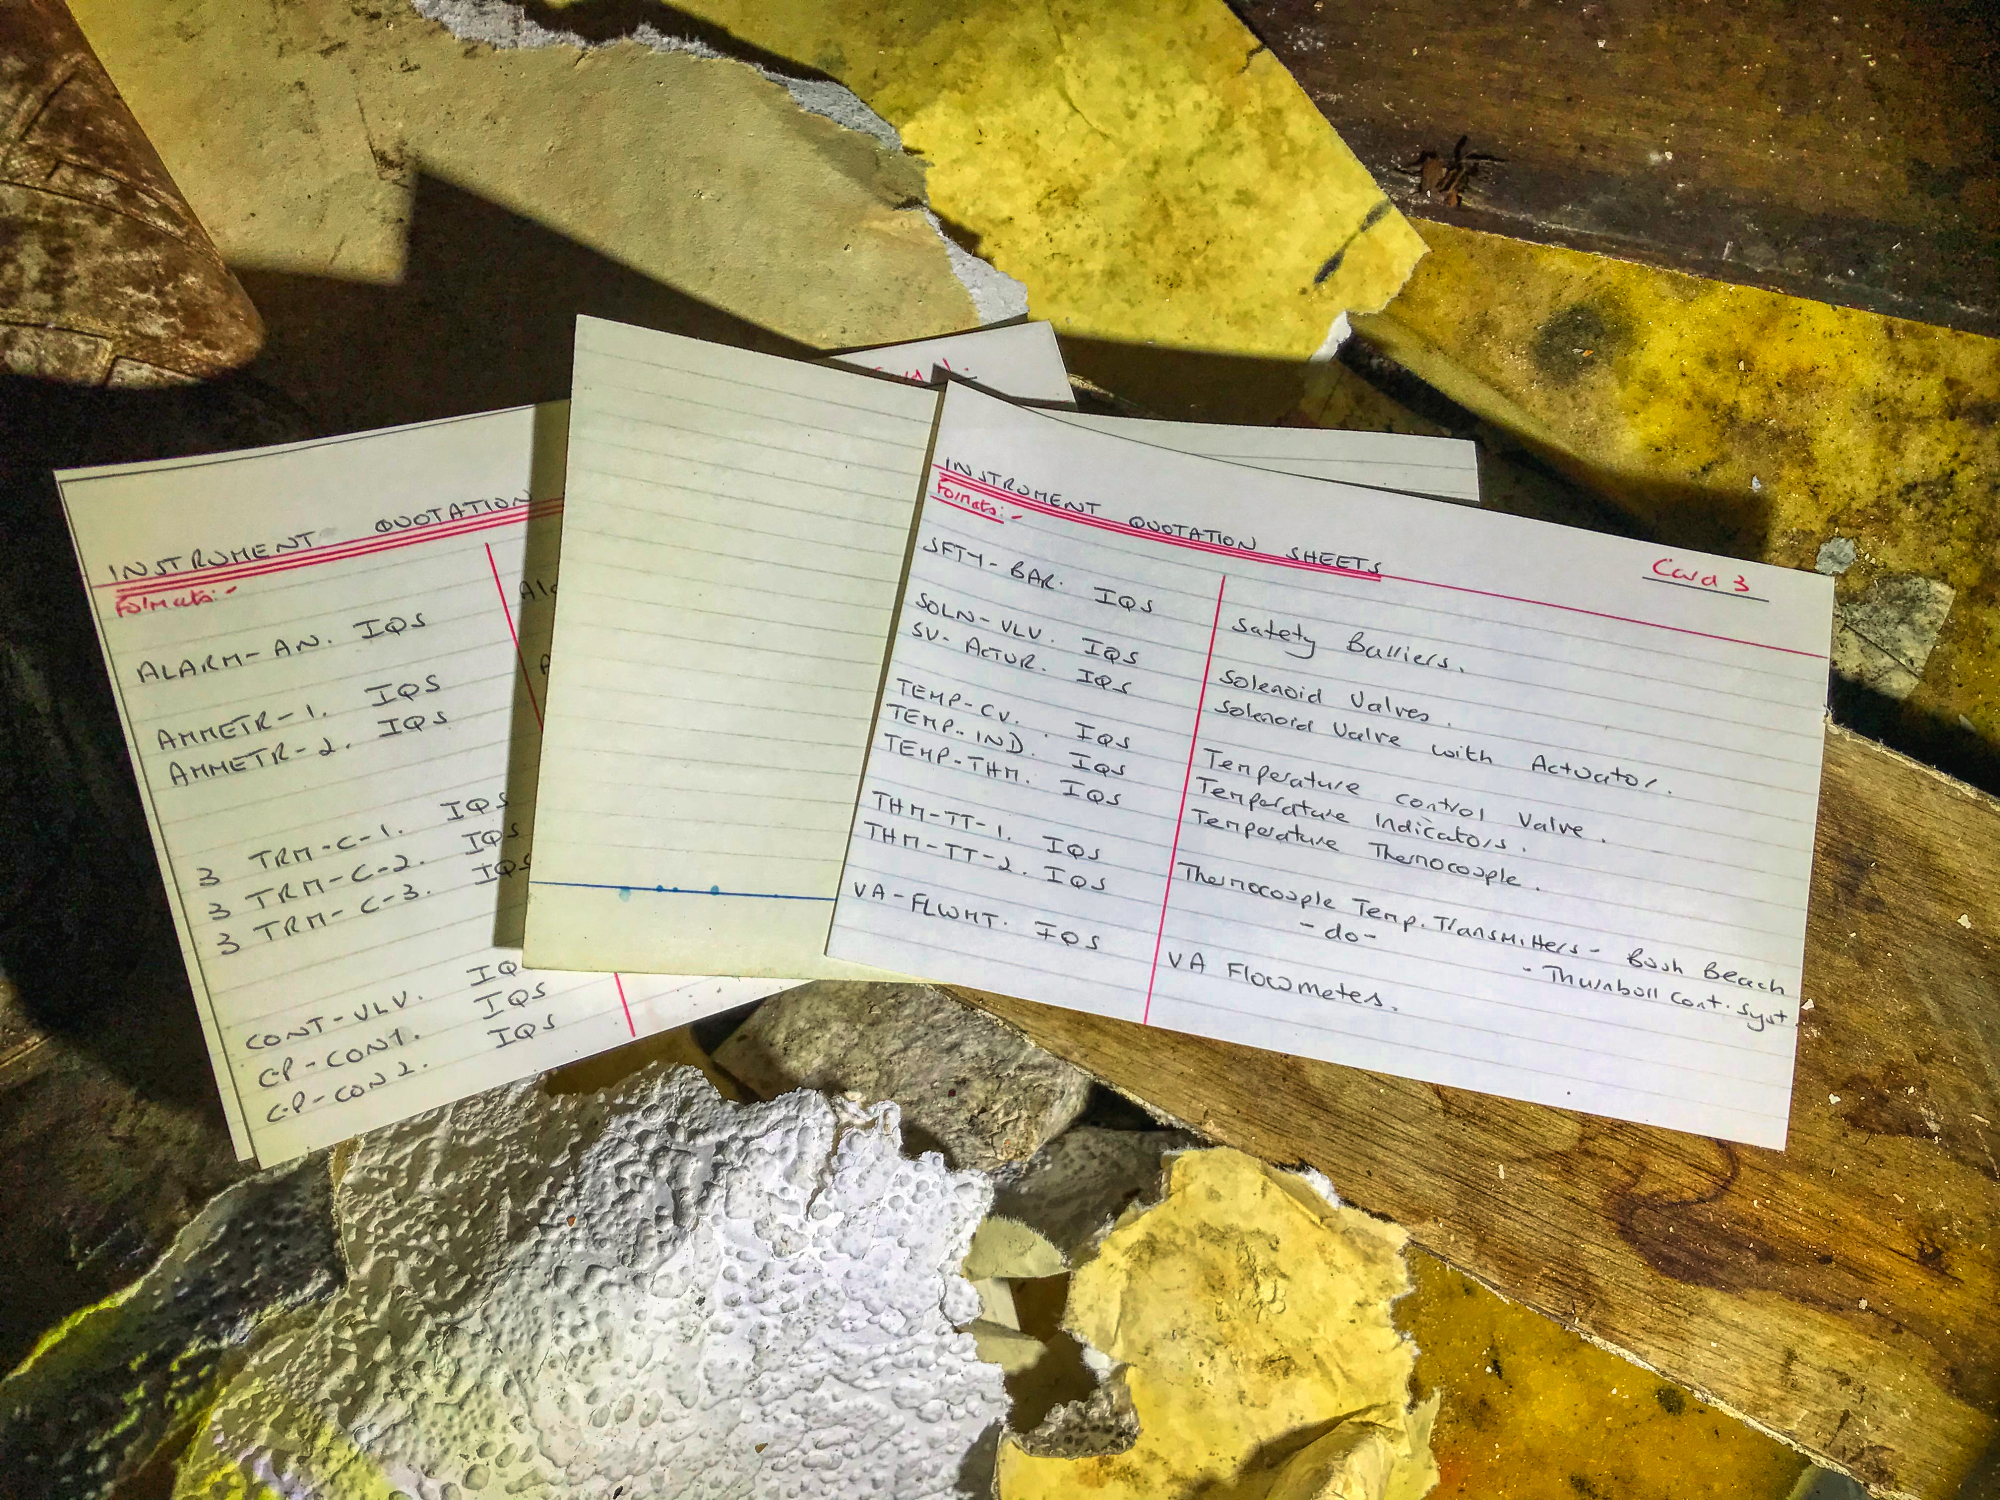 Card 1.
INSTRUMENT QUOTATION
Formats:-
ALARM-AN. IQS
AMMETR-1. IQS
AMMETR-2. IQS
3 TRM-C-1. IQS
3 TRM-C-2. IQS
3 TRM-C-3. IQS
CONT-VLV. IQ
C-P-CON1. IQS
C-P-CON2. IQS
INSTRUMENT QUOTATION SHEETS
Card 3
Formats:-
SFTY-BAR. IQS Safety Barriers.
SOLN-VLV. IQS Solenoid Valves.
SV-ACTUR. IQS Solenoid Valve with Actuator.
TEMP-CV. IQS Temperature control Valve.
TEMP-IND. IQS Temperature Indicators.
TEMP-THM. IQS Temperature Thermocouple.
THM-TT-1. IQS Thermocouple Temp. Transmitters - Bush Beach
THM-TT-2. IQS -do- - Thurnball Cont. Syst.
VA-FLWMT. IQS VA Flowmeters.